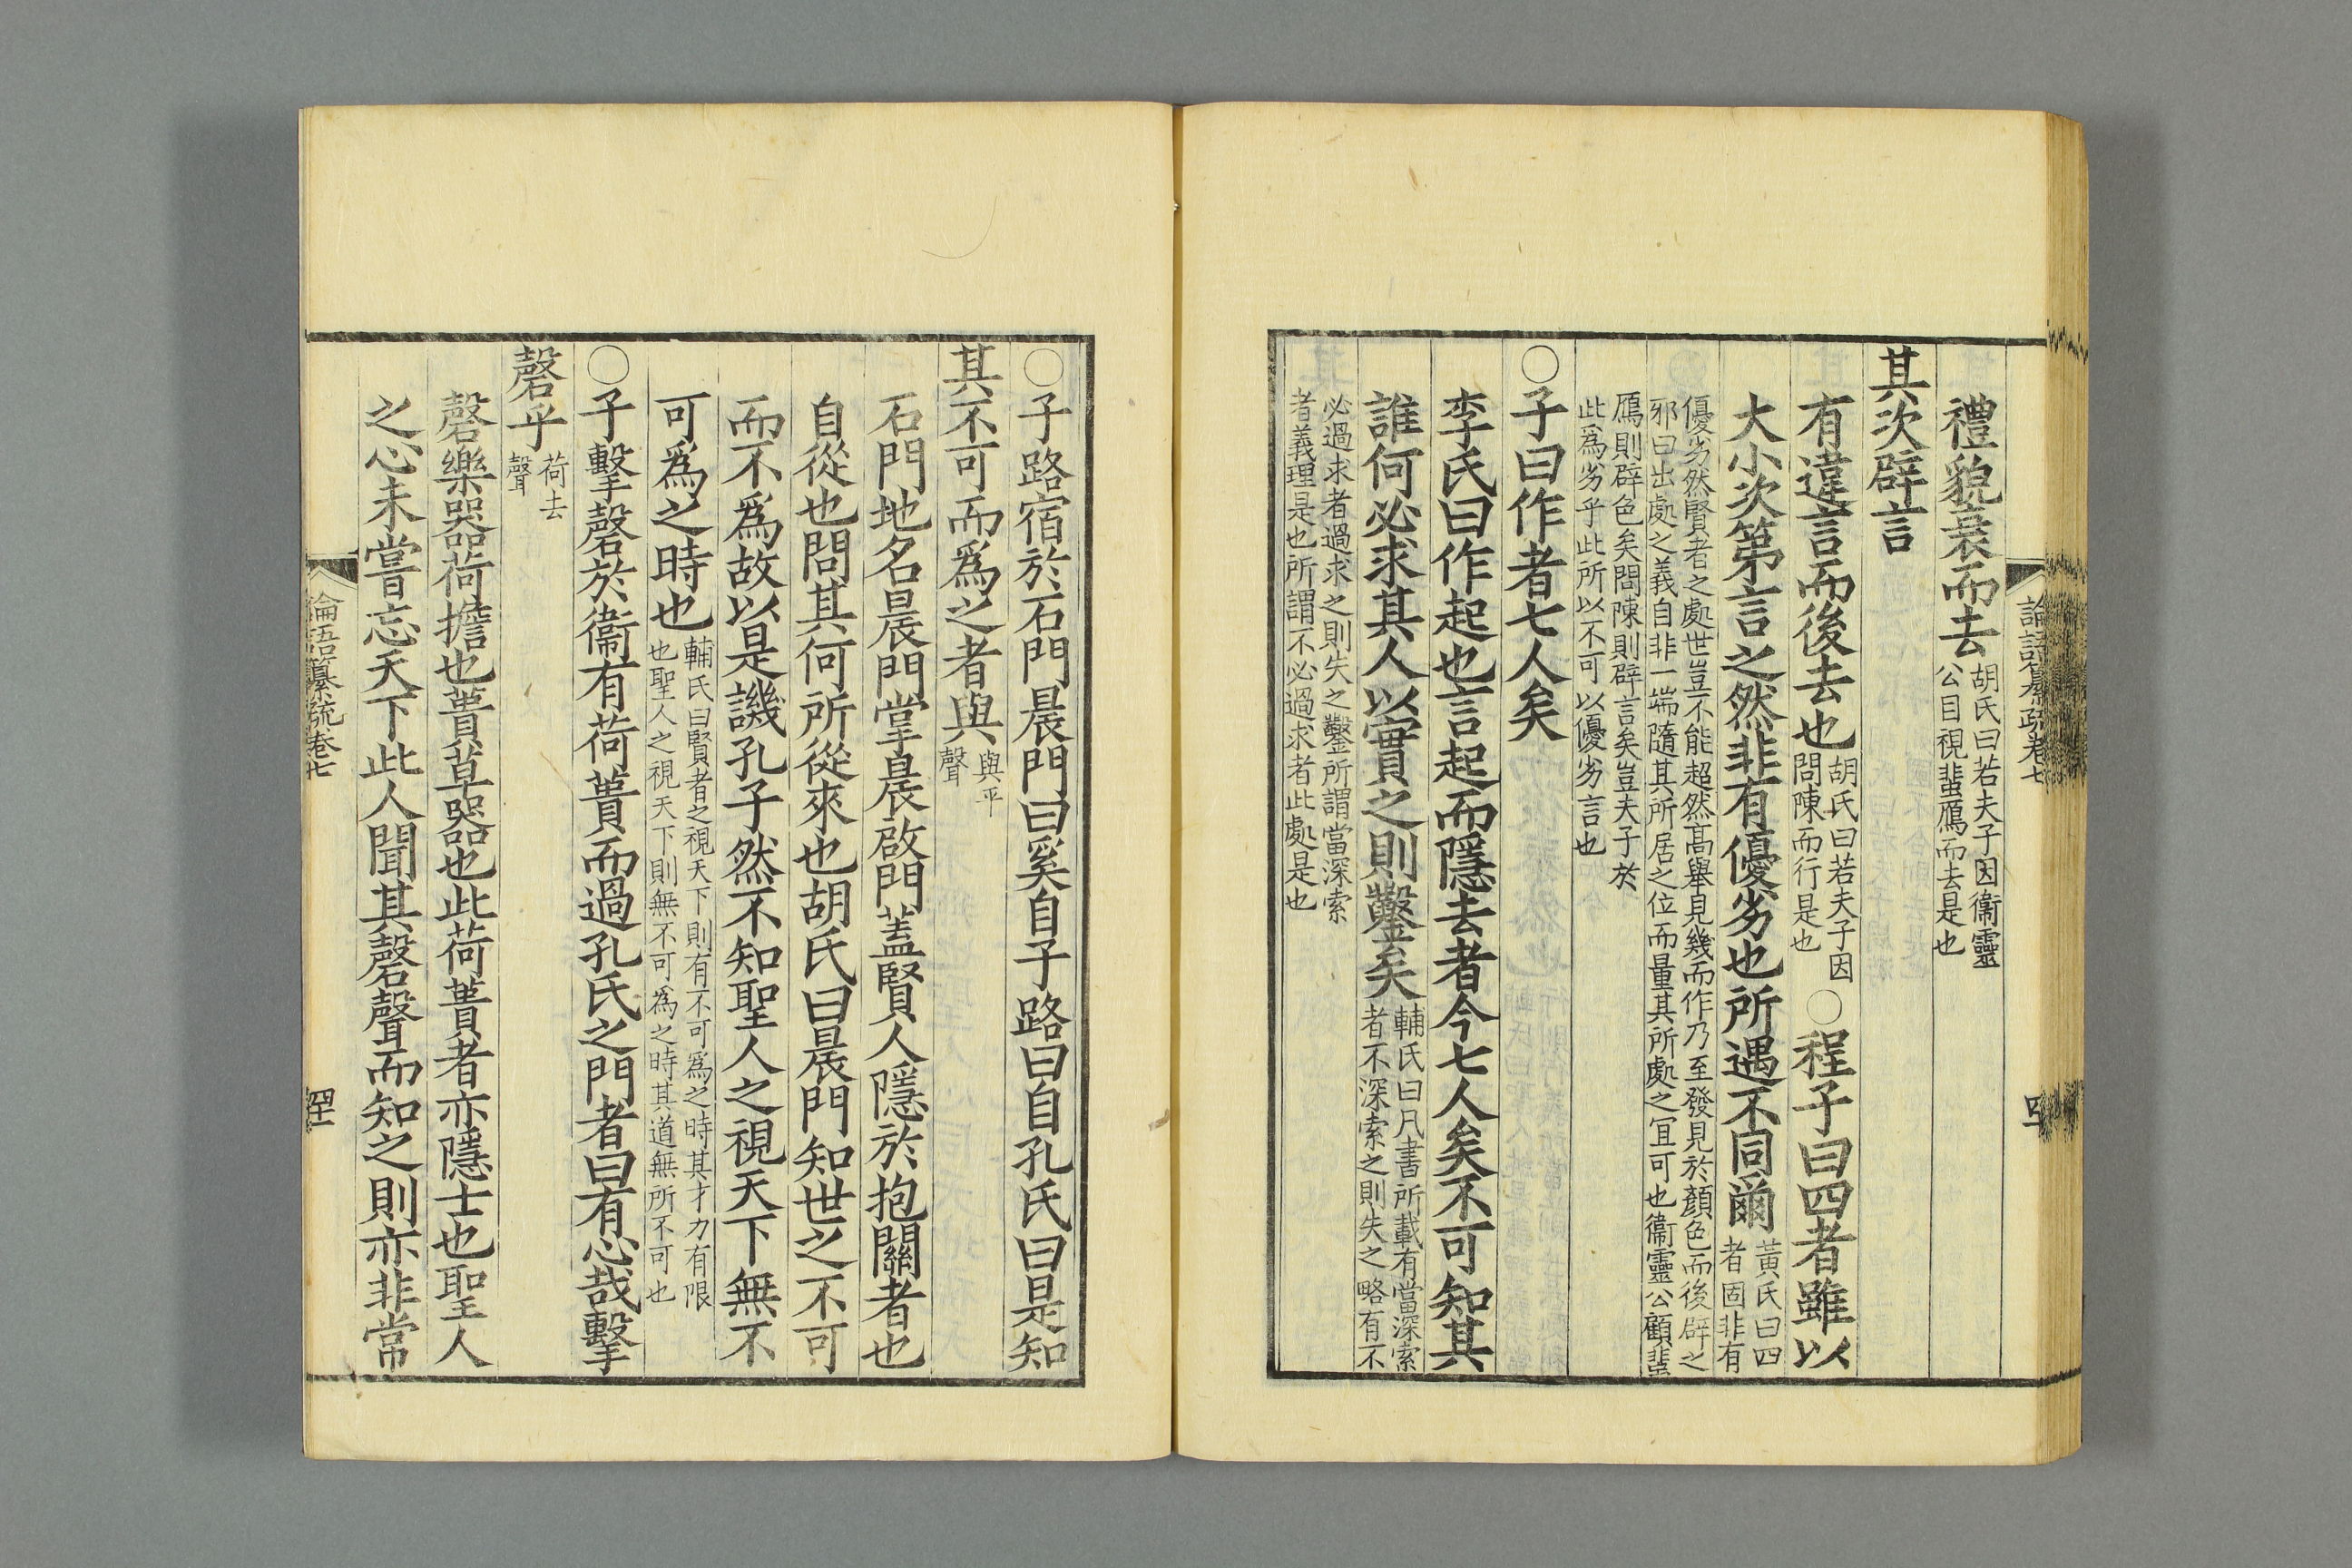 禮貌衰而去胡氏曰若夫子因衞靈
公目視蜚鴈而去是也
其次辟言
有違言而後去也胡氏曰若夫子因
問陳而行是也○程子曰四者雖以
大小次第言之然非有優劣也所遇不同爾黃氏曰四
者固非有
優劣然賢者之處世豈不能超然高舉見幾而作乃至發見於顏色而後辟之
邪曰出處之義自非一端隨其所居之位而量其所處之冝可也衞靈公顧蜚
鴈則辟色矣問陳則辟言矣豈夫子於
此爲劣乎此所以不可以優劣言也
○子曰作者七人矣
李氏曰作起也言起而隱去者今七人矣不可知其
誰何必求其人以實之則鑿矣輔氏曰凡書所載有當深索
者不深索之則失之略有不
必過求者過求之則失之鑿所謂當深索
者義理是也所謂不必過求者此處是也
論語纂疏卷七
○子路宿於石門晨門曰奚自子路曰自孔氏曰是知
其不可而爲之者與與平
聲
石門地名晨門掌晨啟門蓋賢人隱於抱關者也
自從也問其何所從來也胡氏曰晨門知世之不可
而不爲故以是譏孔子然不知聖人之視天下無不
可爲之時也輔氏曰賢者之視天下則有不可爲之時其才力有限
也聖人之視天下則無不可爲之時其道無所不可也
○子擊磬於衞有荷蕢而過孔氏之門者曰有心哉擊
磬乎荷去
聲
磬樂器荷擔也蕢草器也此荷蕢者亦隱士也聖人
之心未嘗忘天下此人聞其磬聲而知之則亦非常
論語纂疏卷七